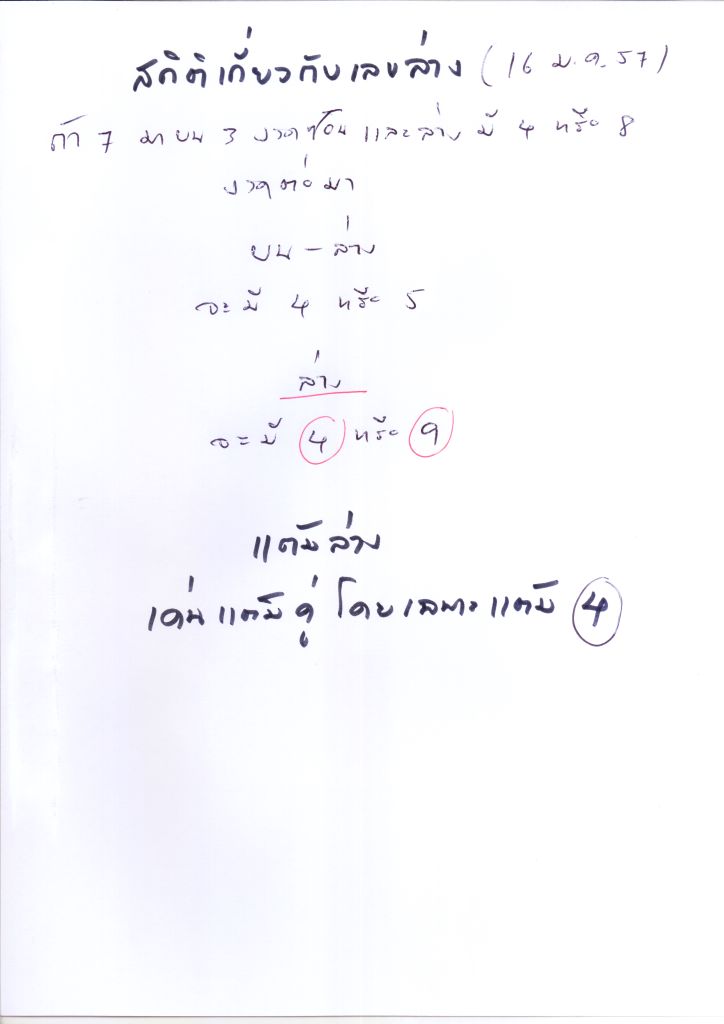 สถิติเกี่ยวกับเลขล่าง (16 ม.ค. 57)
ถ้า 7 มาบน 3 งวดซ้อน และล่าง มี 4 หรือ 8
งวดต่อมา
บน – ล่าง
จะมี 4 หรือ 5
ล่าง
จะมี 4 หรือ 9
แต้มล่าง
เด่นแต้มคู่ โดยเฉพาะแต้ม 4